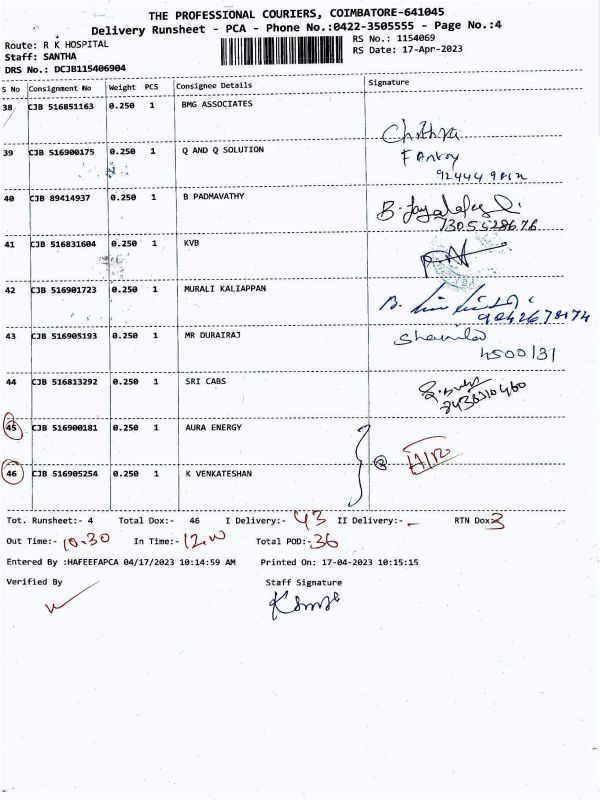 THE PROFESSIONAL COURIERS, COIMBATORE-641045
Delivery Runsheet - PCA - Phone No.:0422-3505555 - Page No.:4
Route: R K HOSPITAL
RS No.: 1154069
Staff: SANTHA
RS Date: 17-Apr-2023
DRS No.: DCJB115406904
S No Consignment No Weight PCS Consignee Details Signature
38 CJB 516851163 0.250 1 BMG ASSOCIATES
Chithra
39 CJB 516900175 0.250 1 Q AND Q SOLUTION
40 CJB 89414937 0.250 1 B PADMAVATHY
41 CJB 516831604 0.250 1 KVB
42 CJB 516901723 0.250 1 MURALI KALIAPPAN
9042678174
43 CJB 516905193 0.250 1 MR DURAIRAJ
44 CJB 516813292 0.250 1 SRI CABS
45 CJB 516900181 0.250 1 AURA ENERGY
46 CJB 516905254 0.250 1 K VENKATESHAN
Tot. Runsheet:- 4 Total Dox:- 46 I Delivery:- 43 II Delivery:- - RTN Dox:- 3
Out Time:- 10.30 In Time:- Total POD:- 36
Entered By :HAFEEFAPCA 04/17/2023 10:14:59 AM Printed On: 17-04-2023 10:15:15
Verified By Staff Signature